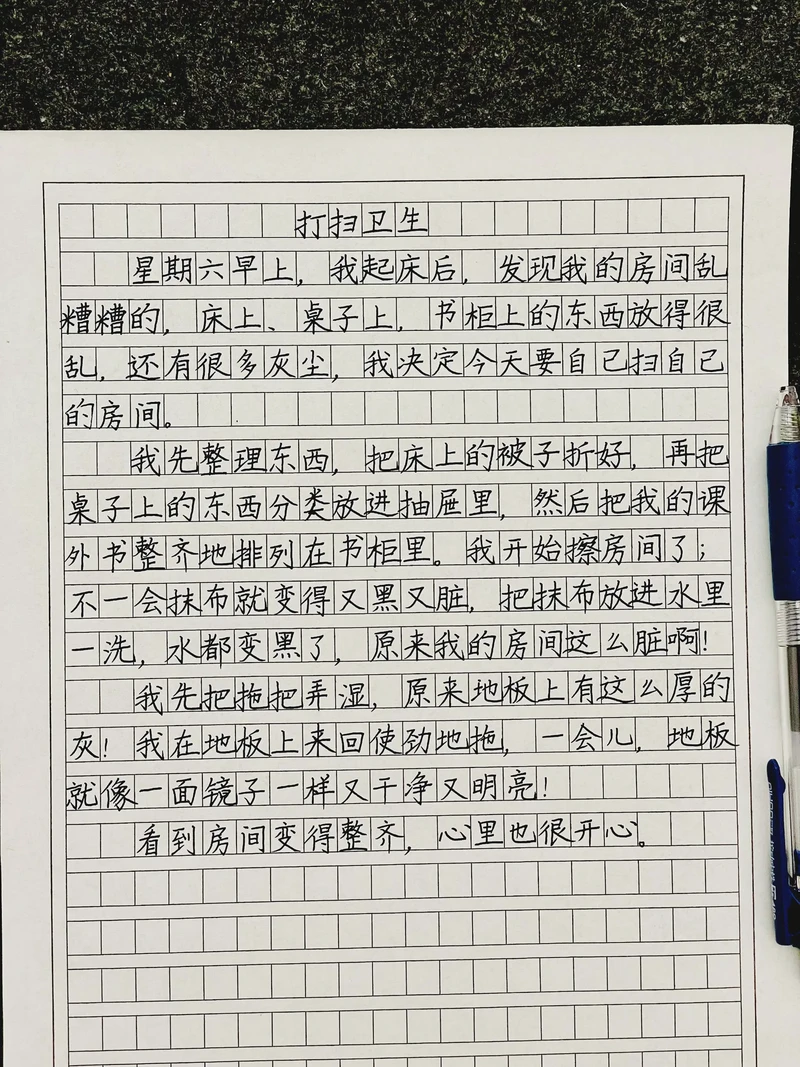 打扫卫生
星期六早上，我起床后，发现我的房间乱
糟糟的，床上、桌子上，书柜上的东西放得很
乱，还有很多灰尘，我决定今天要自己扫自己
的房间。
我先整理东西，把床上的被子折好，再把
桌子上的东西分类放进抽屉里，然后把我的课
外书整齐地排列在书柜里。我开始擦房间了；
不一会抹布就变得又黑又脏，把抹布放进水里
一洗，水都变黑了，原来我的房间这么脏啊！
我先把拖把弄湿，原来地板上有这么厚的
灰！我在地板上来回使劲地拖，一会儿，地板
就像一面镜子一样又干净又明亮！
看到房间变得整齐，心里也很开心。